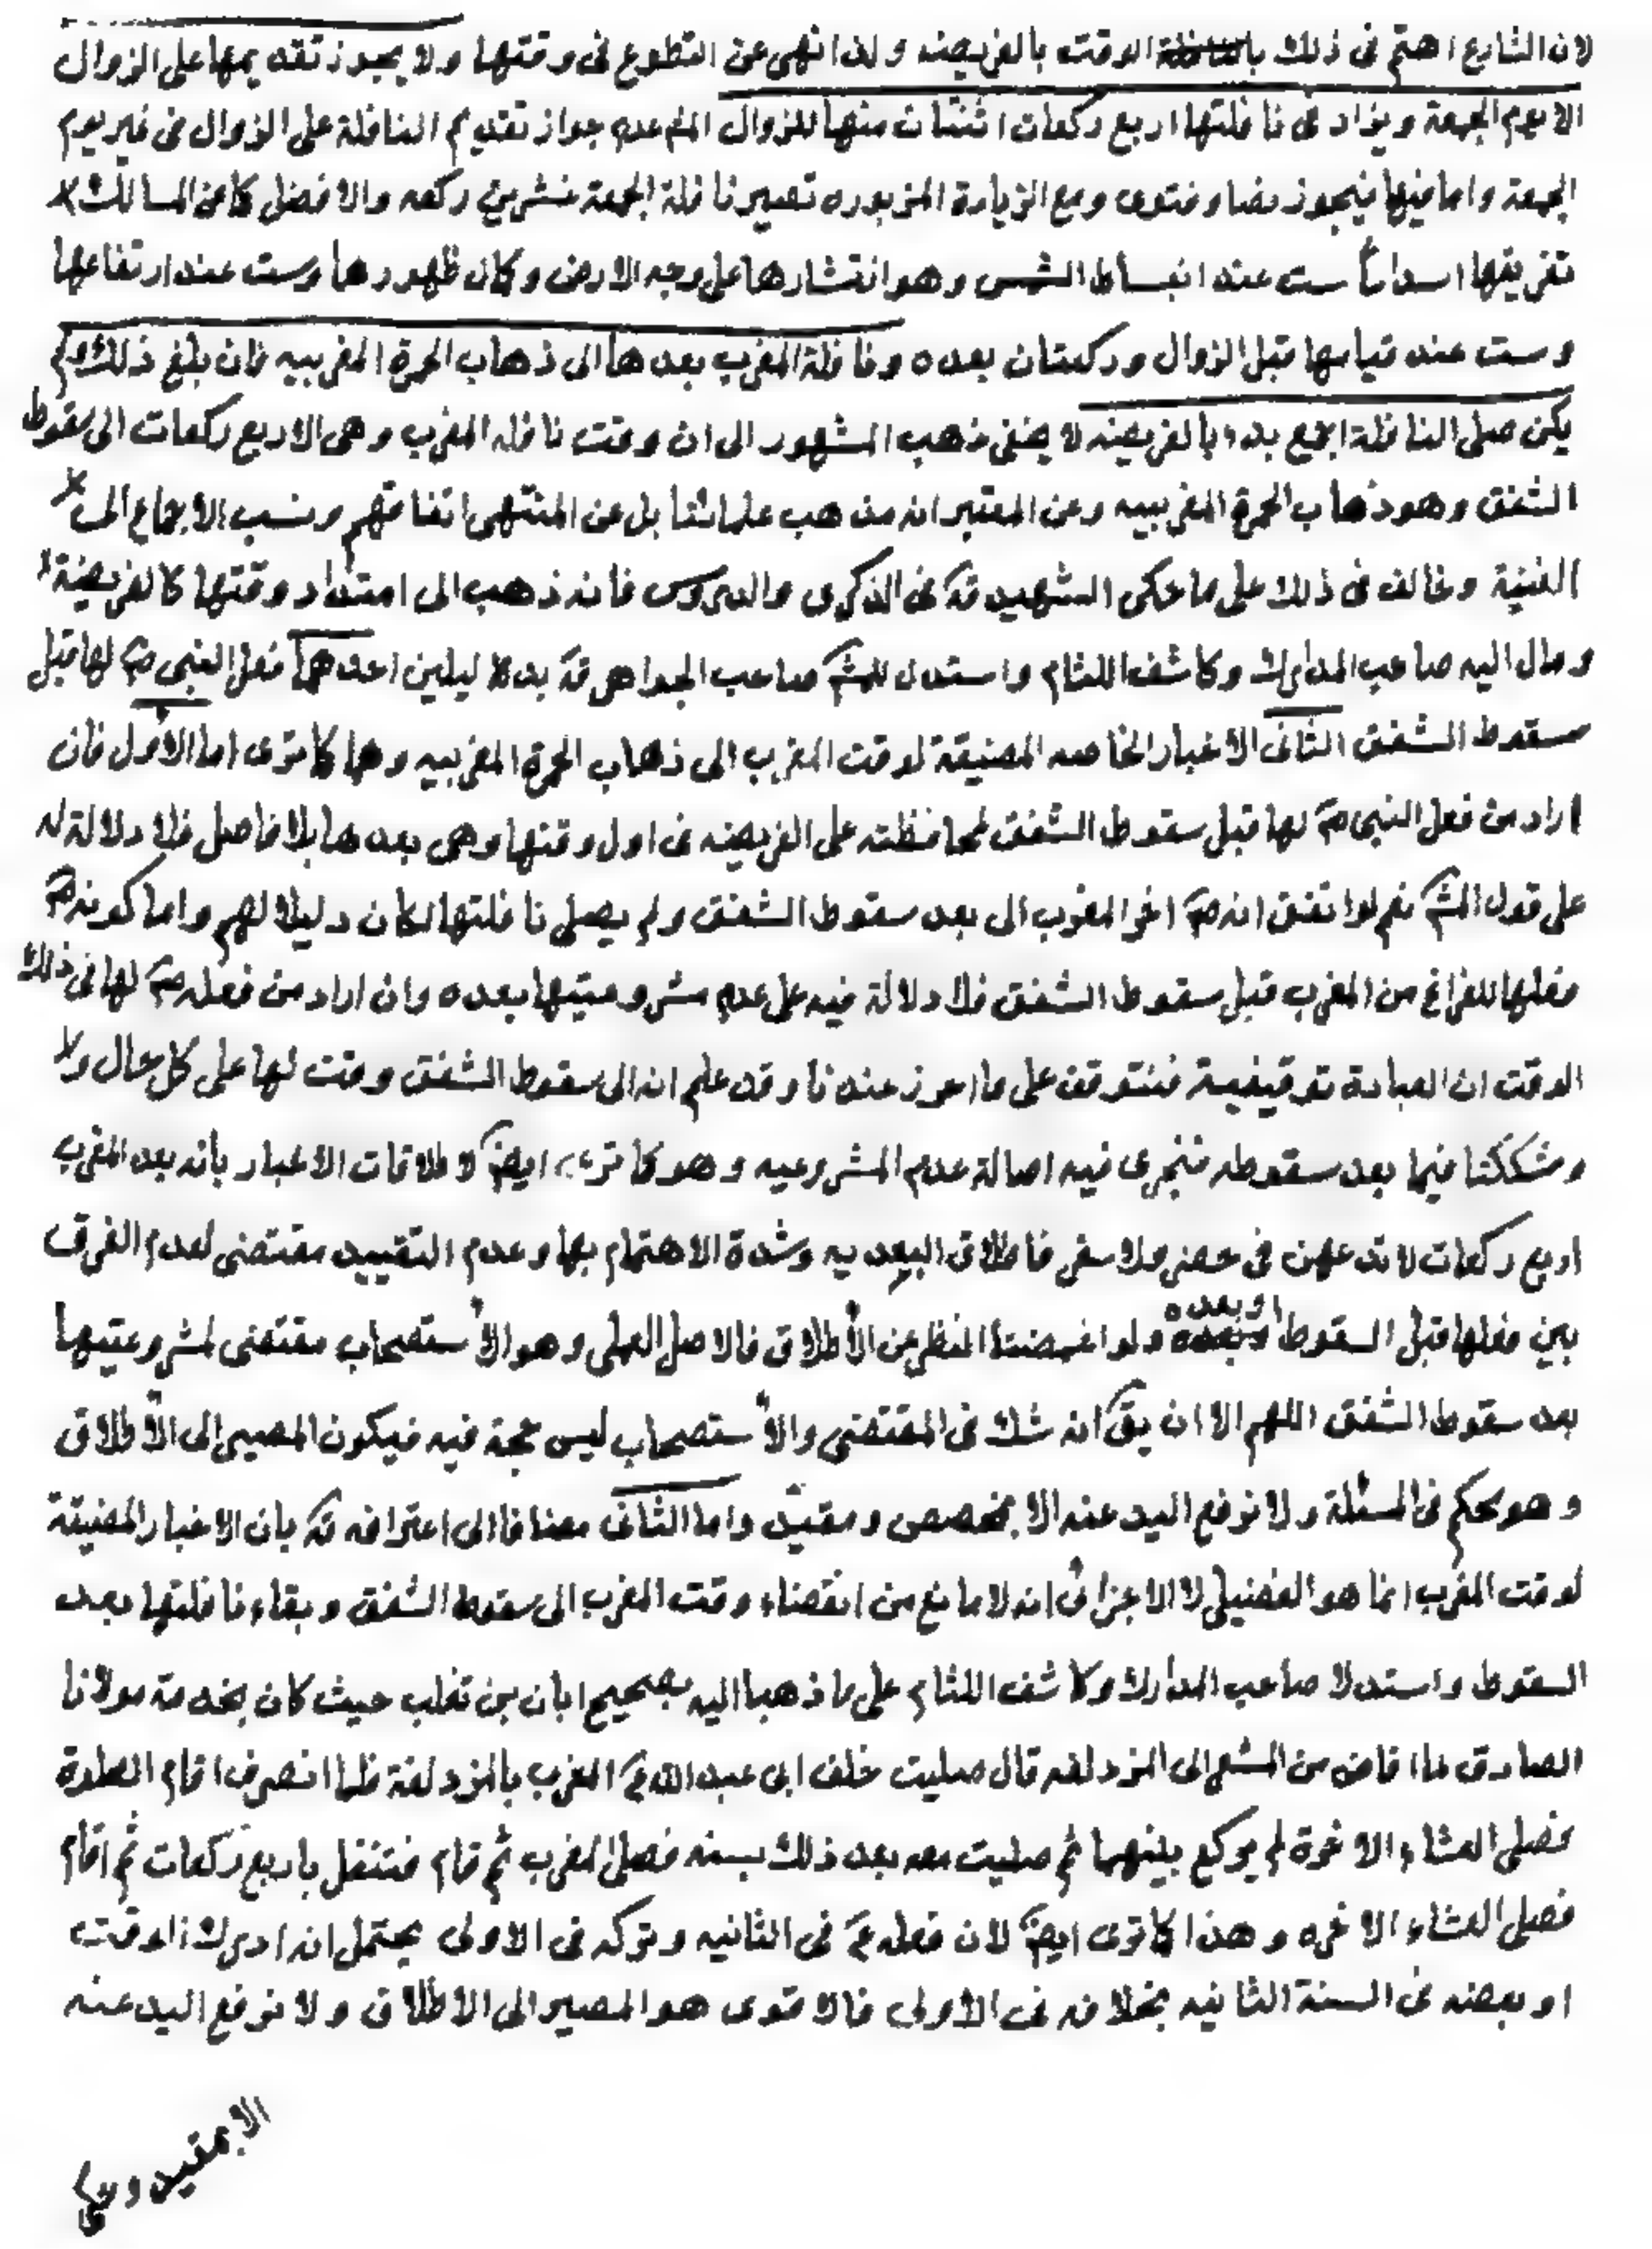 لان الشارع اهتم فى ذلك الوقت بالفريضه ولذا نهى عن التطوع فى وقتها ولا يجوز تقديمها على الزوال
الا يوم الجمعة ويزاد فى نافلتها اربع ركعات اثنتان منها للزوال عدم جواز تقديم النافلة على الزوال فى غير يوم
الجمعة واما فيها فيجوز نصا وفتوى ومع الزيادة المزبوره تصير نافلة الجمعة عشرين ركعه والافضل كما عن المسالك
تفريقها اسداسا ست عند انبساط الشمس وهو انتشارها على وجه الارض وكمال ظهورها وست عند ارتفاعها
وست عند قيامها قبل الزوال وركعتان بعده ونافلة المغرب بعدها الى ذهاب الحمرة المغربيه فان بلغ ذلك ولم
يكن صلى النافلة اجمع بدء بالفريضه لا يخفى ذهب المشهور الى ان وقت نافله المغرب وهى الاربع ركعات الى سقوط
الشفق وهو ذهاب الحمرة المغربيه وعن المعتبر انه مذهب علمائنا بل عن المنتهى اتفاقهم ونسب الاجماع الى
الغنية وخالف فى ذلك على ما حكى الشهيد قده فى الذكرى والدروس فانه ذهب الى امتداد وقتها كالفريضة
ومال اليه صاحب المدارك وكاشف اللثام واستدل للمشه صاحب الجواهر قده بدلاليلين احدهما فعل النبى صه لها قبل
سقوط الشفق الثانى الاخبار الخاصه المضيقة لوقت المغرب الى ذهاب الحمرة المغربيه وهما كما ترى اما الاول فان
اراد من فعل النبى صه لها قبل سقوط الشفق لمحافظته على الفريضه فى اول وقتها وهى بعدها بلا فاصل فلا دلالة له
على قول المشه نعم لو اتفق انه صه اخر المغرب الى بعد سقوط الشفق ولم يصلى نافلتها لكان دليلا لهم واما كونه صه
فعلها للفراغ من المغرب قبل سقوط الشفق فلا دلالة فيه على عدم مشروعيتها بعده وان اراد من فعله صه لها فى ذلك
الوقت ان العبادة توقيفية فنتوقف على ما احرز عندنا وقد علم انه الى سقوط الشفق وقت لها على كل حال ولا
وشككنا فيما بعد سقوطه فنجرى فيه اصالة عدم المشروعيه وهو كما ترى ايضا لاطلاقات الاخبار بانه بعد المغرب
اربع ركعات لا تدعهن فى حضر ولا سفر فاطلاق البعديه وشدة الاهتمام بها وعدم التقييد مقتضى لعدم الفرق
بين فعلها قبل السقوط او بعده ولو اغمضنا النظر عن الاطلاق فالاصل العملى وهو الاستصحاب مقتضى لمشروعيتها
بعد سقوط الشفق اللهم الا ان يق انه شك فى المقتضى والاستصحاب ليس حجة فيه فيكون المصير الى الاطلاق
وهو محكم فى المسئلة ولا نرفع اليد عنه الا بمخصص ومقيد واما الثانى مضافا الى اعترافه قده بان الاخبار المضيقة
لوقت المغرب انما هو الفضيلى لا الاجزائى انه لا مانع من انقضاء وقت المغرب الى سقوط الشفق وبقاء نافلتها بعد
السقوط واستدلا صاحب المدارك وكاشف اللثام على ما ذهبا اليه بصحيح ابان بن تغلب حيث كان بخدمة مولانا
الصادق لما افاض من المشعر الى المزدلفه قال صليت خلف ابى عبد الله ع المغرب بالمزدلفة فلما انصرف اقام الصلوة
فصلى العشاء الاخرة لم يركع بينهما ثم صليت معه بعد ذلك بسنه فصلى المغرب ثم قام فتنفل باربع ركعات ثم اقام
فصلى العشاء الاخره وهذا كما ترى ايضا لان فعله ع فى الثانيه وتركه فى الاولى يحتمل انه ادرك الوقت
او بعضه فى السنة الثانيه بخلافه فى الاولى فالاقوى هو المصير الى الاطلاق ولا نرفع اليد عنه
الا بمقيد